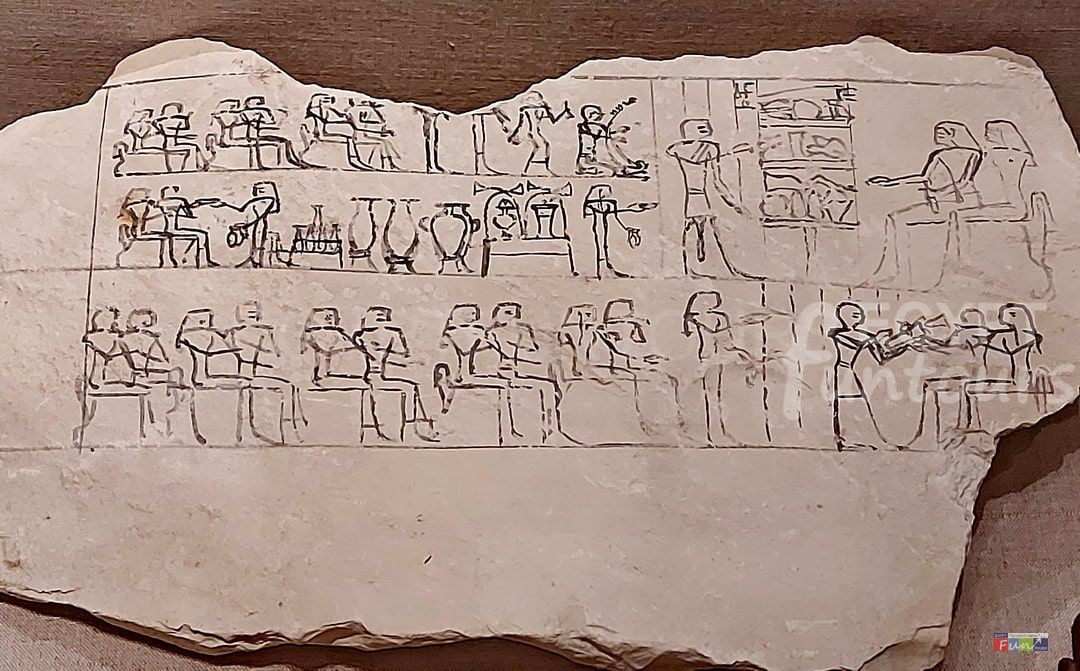 EGYPT
fun tours
EGYPT
Fun
TOURS